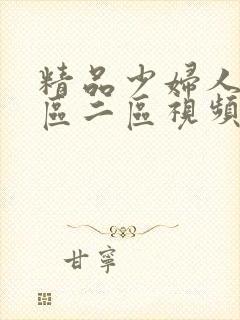 精品少婦人
區二區視頻
甘寧